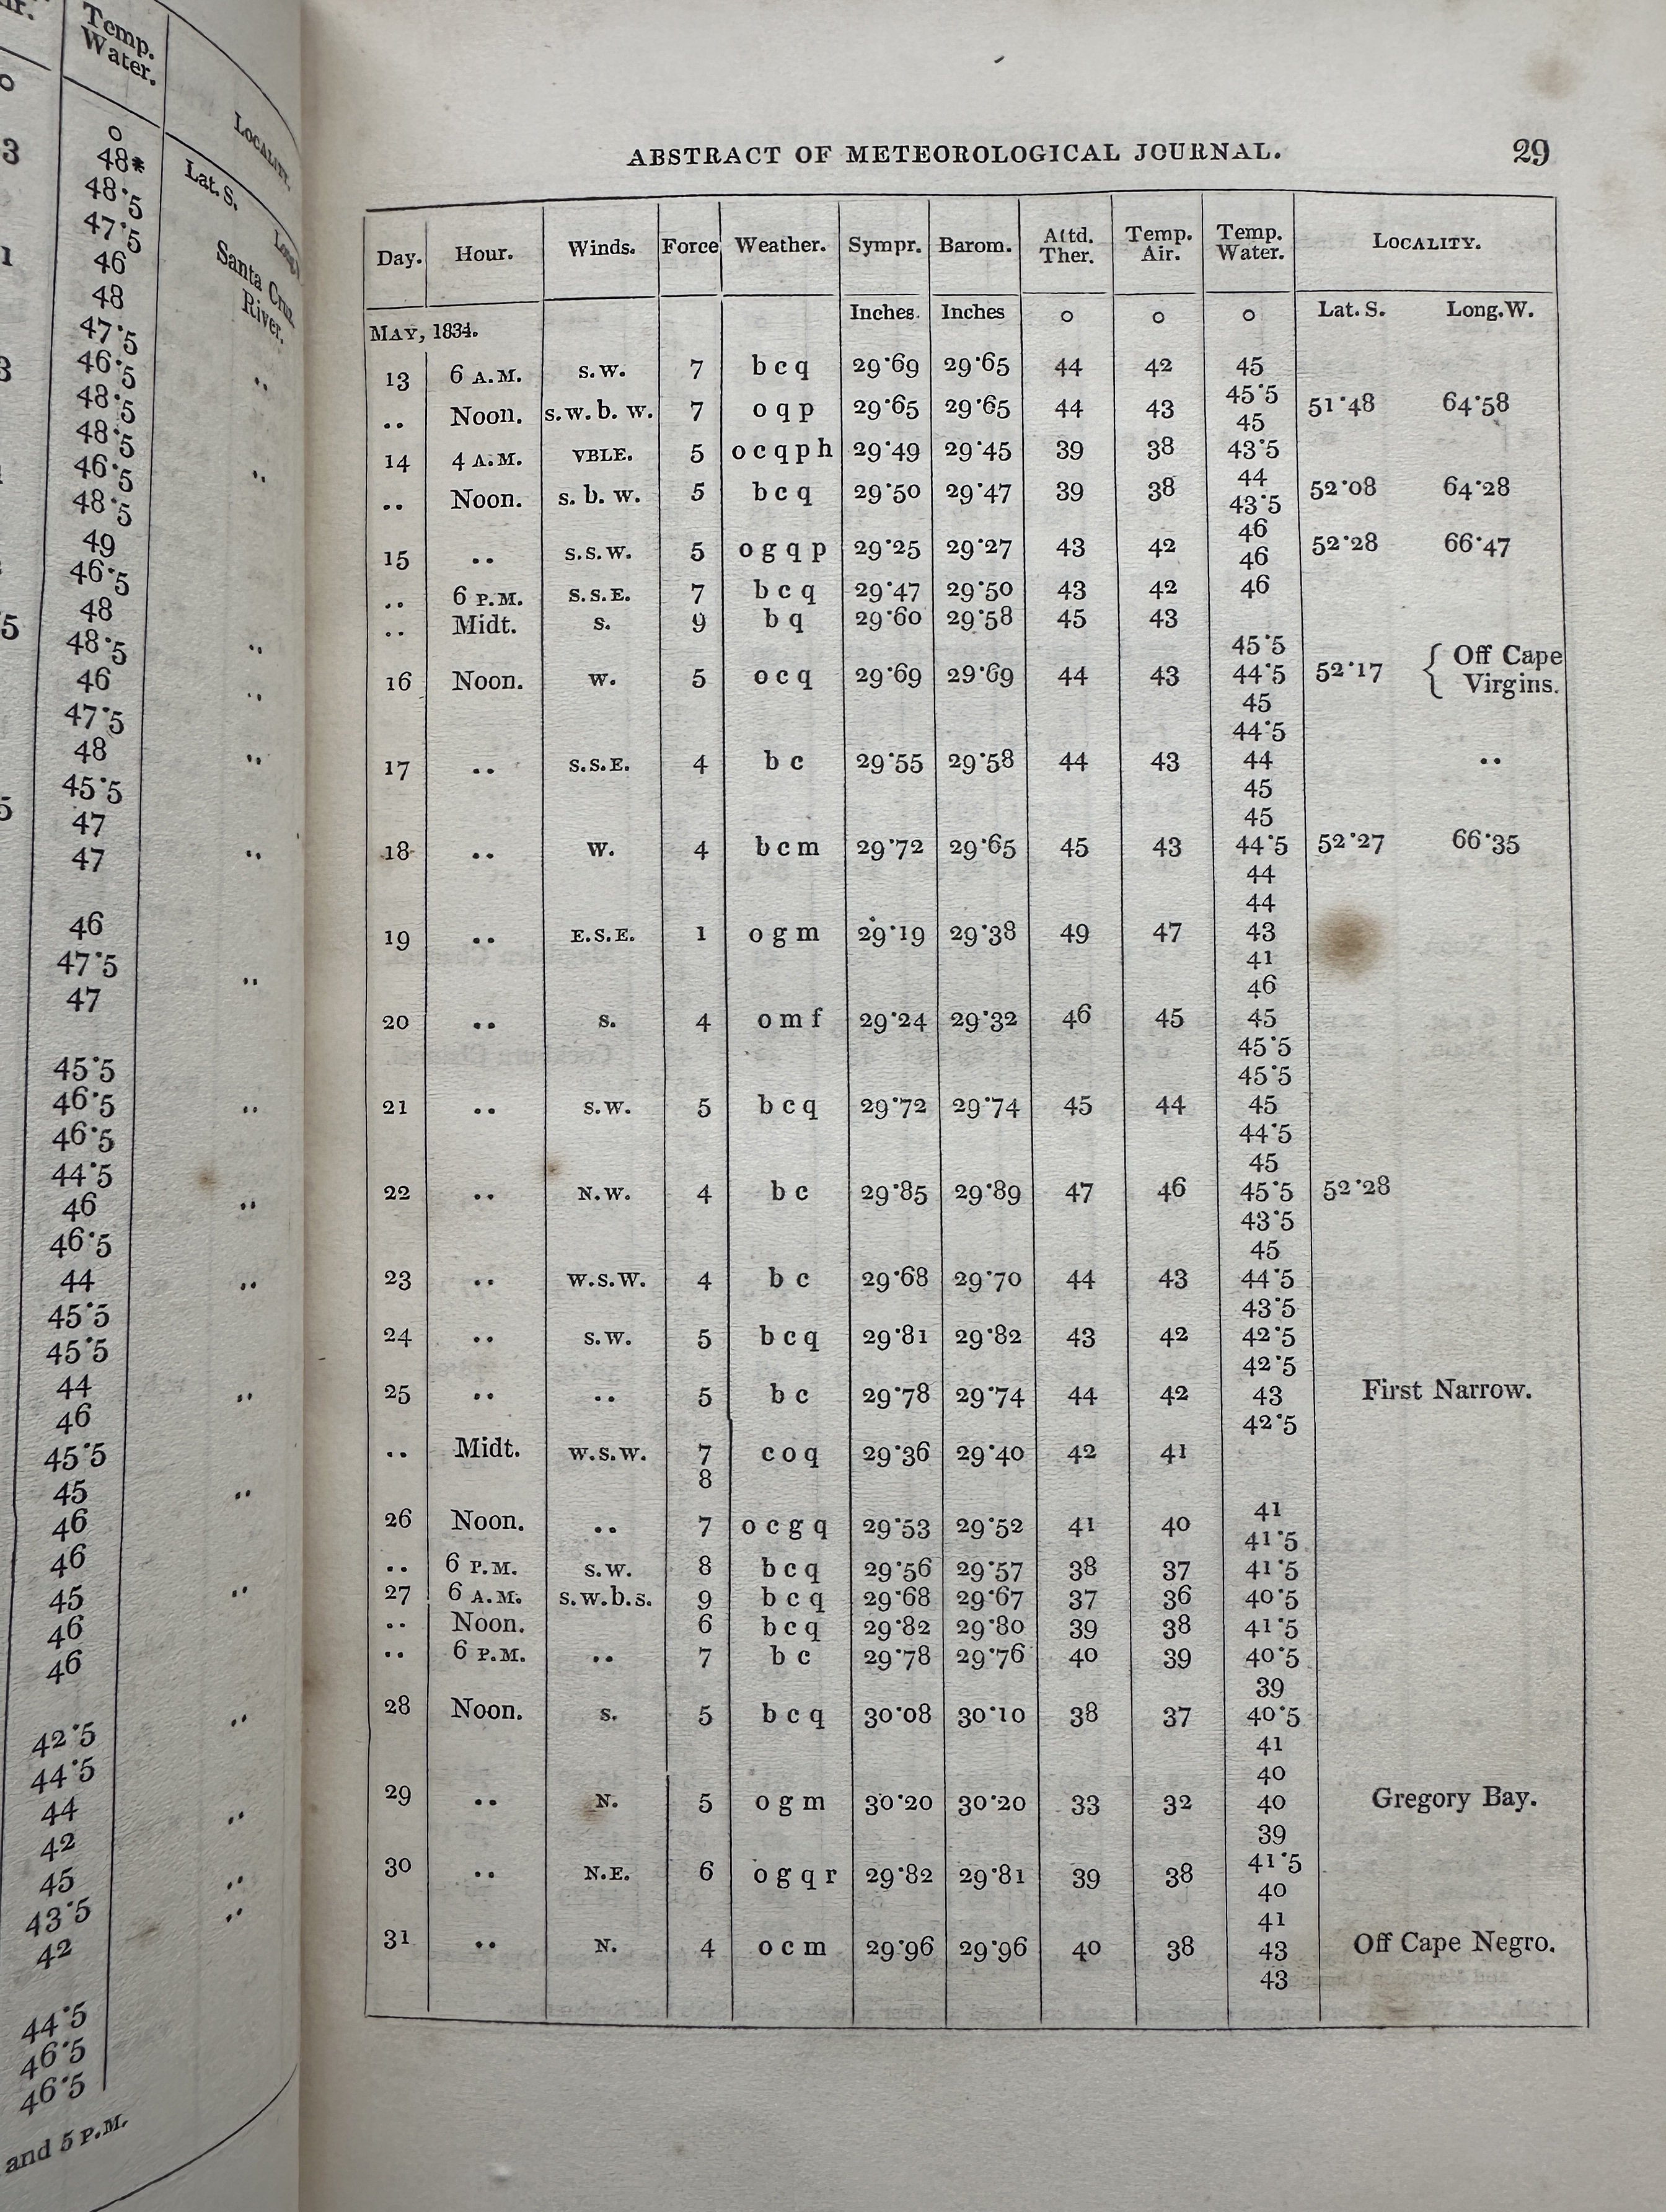 Temp.
Water.
LOCALITY.
o
Lat. S.
48*
48·5
47·5
Santa Cruz
River.
46
48
47·5
46·5
··
48·5
48·5
46·5
··
48·5
49
46·5
48
48·5
··
46
··
47·5
48
··
45·5
47
47
··
46
47·5
··
47
45·5
46·5
··
46·5
44·5
46
··
46·5
44
··
45·5
45·5
44
··
46
45·5
45
··
46
46
45
··
46
46
42·5
··
44·5
44
··
42
45
··
43·5
··
42
44·5
46·5
46·5
and 5 P.M.
ABSTRACT OF METEOROLOGICAL JOURNAL. 29
Day. Hour. Winds. Force Weather. Sympr. Barom. Attd. Ther. Temp. Air. Temp. Water. LOCALITY.
Inches. Inches o o o Lat. S. Long. W.
MAY, 1834.
13 6 A.M. S.W. 7 b c q 29·69 29·65 44 42 45
45·5
.. Noon. S.W. b. W. 7 o q p 29·65 29·65 44 43 51·48 64·58
45
14 4 A.M. VBLE. 5 o c q p h 29·49 29·45 39 38 43·5
44
.. Noon. S. b. W. 5 b c q 29·50 29·47 39 38 52·08 64·28
43·5
46
15 .. S.S.W. 5 o g q p 29·25 29·27 43 42 52·28 66·47
46
.. 6 P.M. S.S.E. 7 b c q 29·47 29·50 43 42 46
.. Midt. S. 9 b q 29·60 29·58 45 43
45·5
16 Noon. W. 5 o c q 29·69 29·69 44 43 44·5 52·17 { Off Cape
Virgins.
45
44·5
17 .. S.S.E. 4 b c 29·55 29·58 44 43 44 ..
45
45
18 .. W. 4 b c m 29·72 29·65 45 43 44·5 52·27 66·35
44
44
19 .. E.S.E. 1 o g m 29·19 29·38 49 47 43
41
46
20 .. S. 4 o m f 29·24 29·32 46 45 45
45·5
45·5
21 .. S.W. 5 b c q 29·72 29·74 45 44 45
44·5
45
22 .. N.W. 4 b c 29·85 29·89 47 46 45·5 52·28
43·5
45
23 .. W.S.W. 4 b c 29·68 29·70 44 43 44·5
43·5
24 .. S.W. 5 b c q 29·81 29·82 43 42 42·5
42·5
25 .. .. 5 b c 29·78 29·74 44 42 43 First Narrow.
42·5
.. Midt. W.S.W. 7 c o q 29·36 29·40 42 41
8
41
26 Noon. .. 7 o c g q 29·53 29·52 41 40
41·5
.. 6 P.M. S.W. 8 b c q 29·56 29·57 38 37 41·5
27 6 A.M. S.W.b.S. 9 b c q 29·68 29·67 37 36 40·5
.. Noon. 6 b c q 29·82 29·80 39 38 41·5
.. 6 P.M. .. 7 b c 29·78 29·76 40 39 40·5
39
28 Noon. S. 5 b c q 30·08 30·10 38 37 40·5
41
40
29 .. N. 5 o g m 30·20 30·20 33 32 40 Gregory Bay.
39
41·5
30 .. N.E. 6 o g q r 29·82 29·81 39 38
40
41
31 .. N. 4 o c m 29·96 29·96 40 38 43 Off Cape Negro.
43